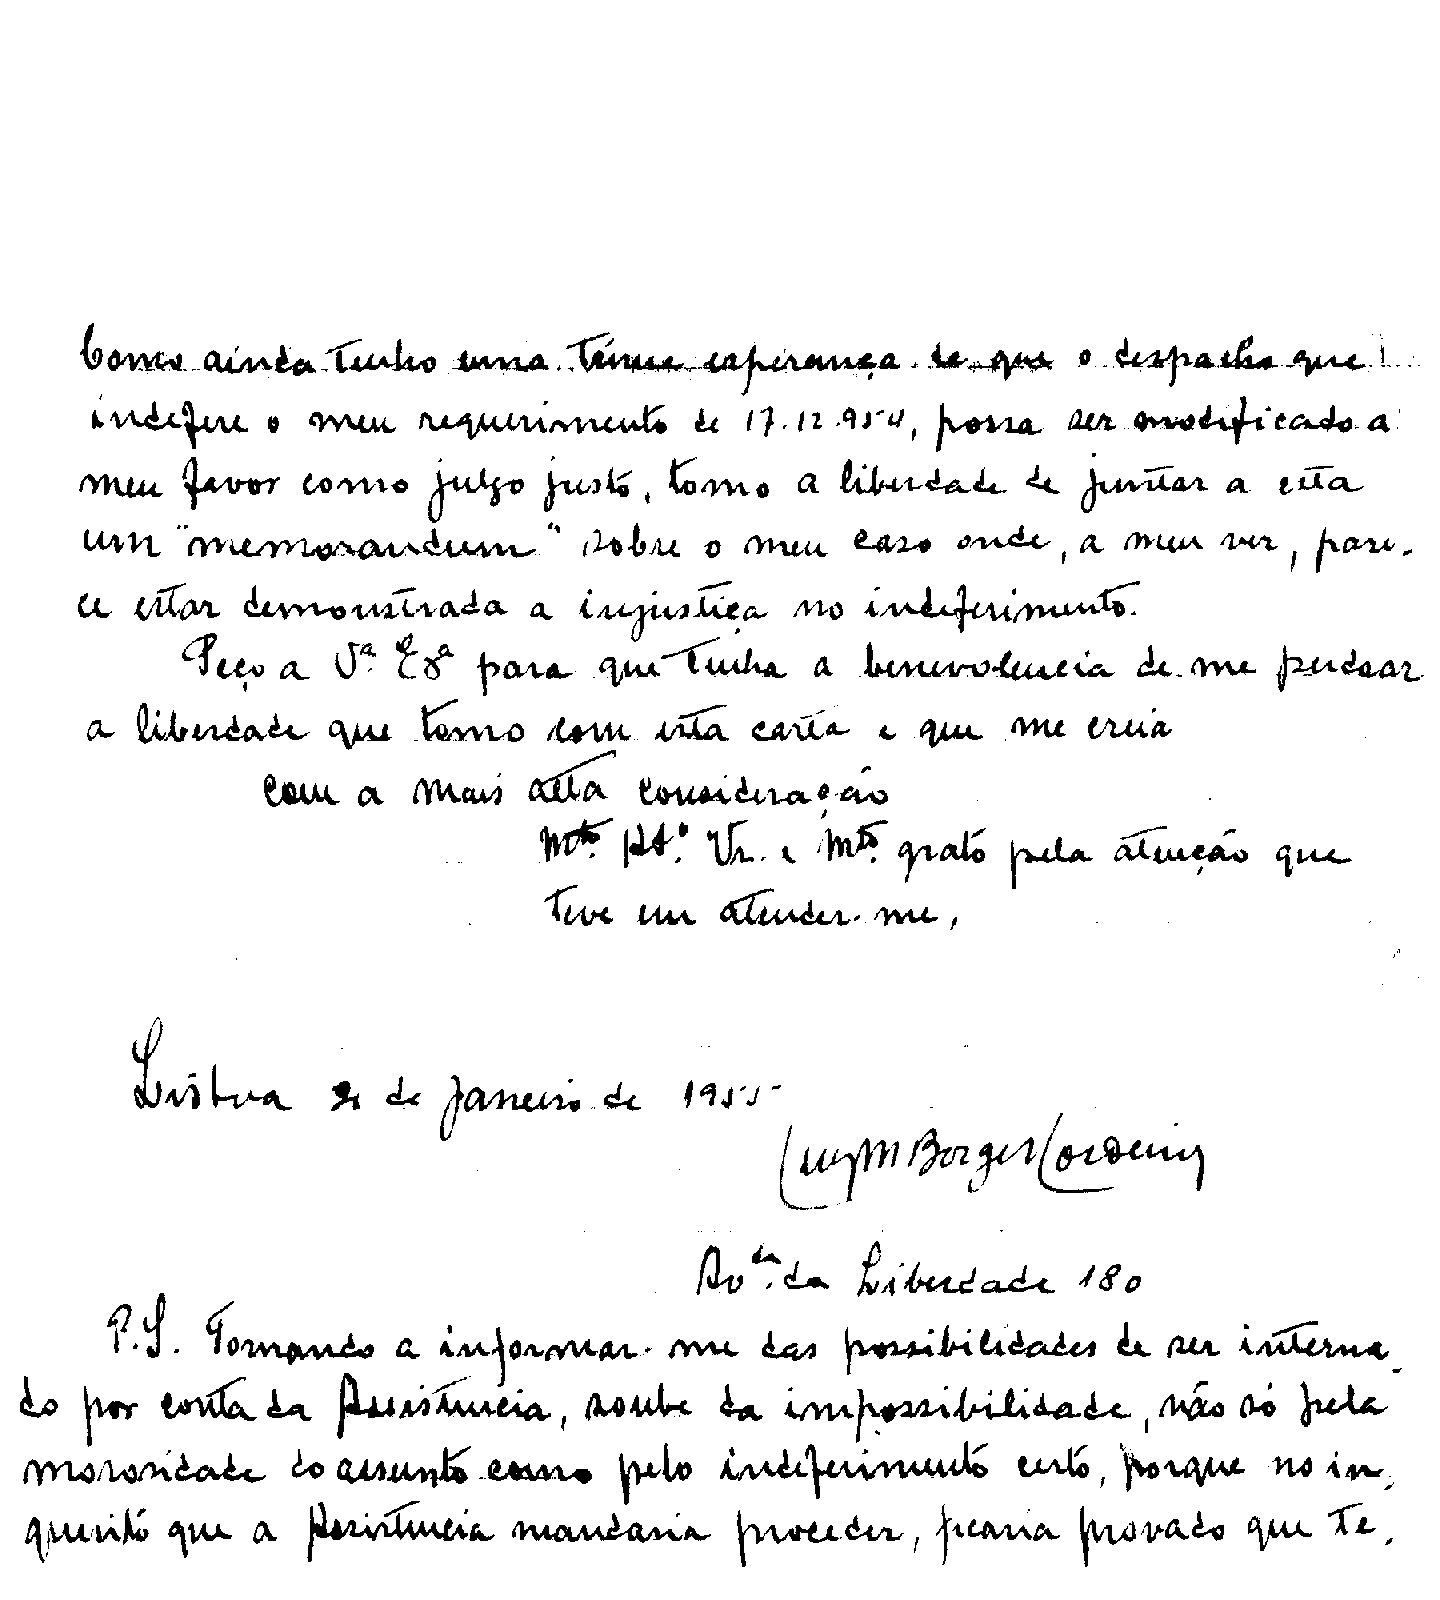 Como ainda tenho uma ténue esperança de que o despacho que
indefere o meu requerimento de 17.12.954, possa ser modificado a
meu favor como julgo justo, tomo a liberdade de juntar a esta
um "memorandum" sobre o meu caso onde, a meu ver, pare-
ce estar demonstrada a injustiça no indeferimento.
Peço a Vª. Exª para que tenha a benevolencia de me perdoar
a liberdade que tomo com esta carta e que me creia
com a mais alta consideração
Mtº. Vr. e Mtº. grato pela atenção que
teve em atender-me,
Lisboa de Janeiro de 1955
Luiz M Borges Cordeiro
Avda. da Liberdade 180
P.S. Tornando a informar-me das possibilidades de ser interna-
do por conta da Assistencia, soube da impossibilidade, não só pela
morosidade do assunto como pelo indeferimento certo, porque no in-
querito que a Assistencia mandaria proceder, ficaria provado que te-